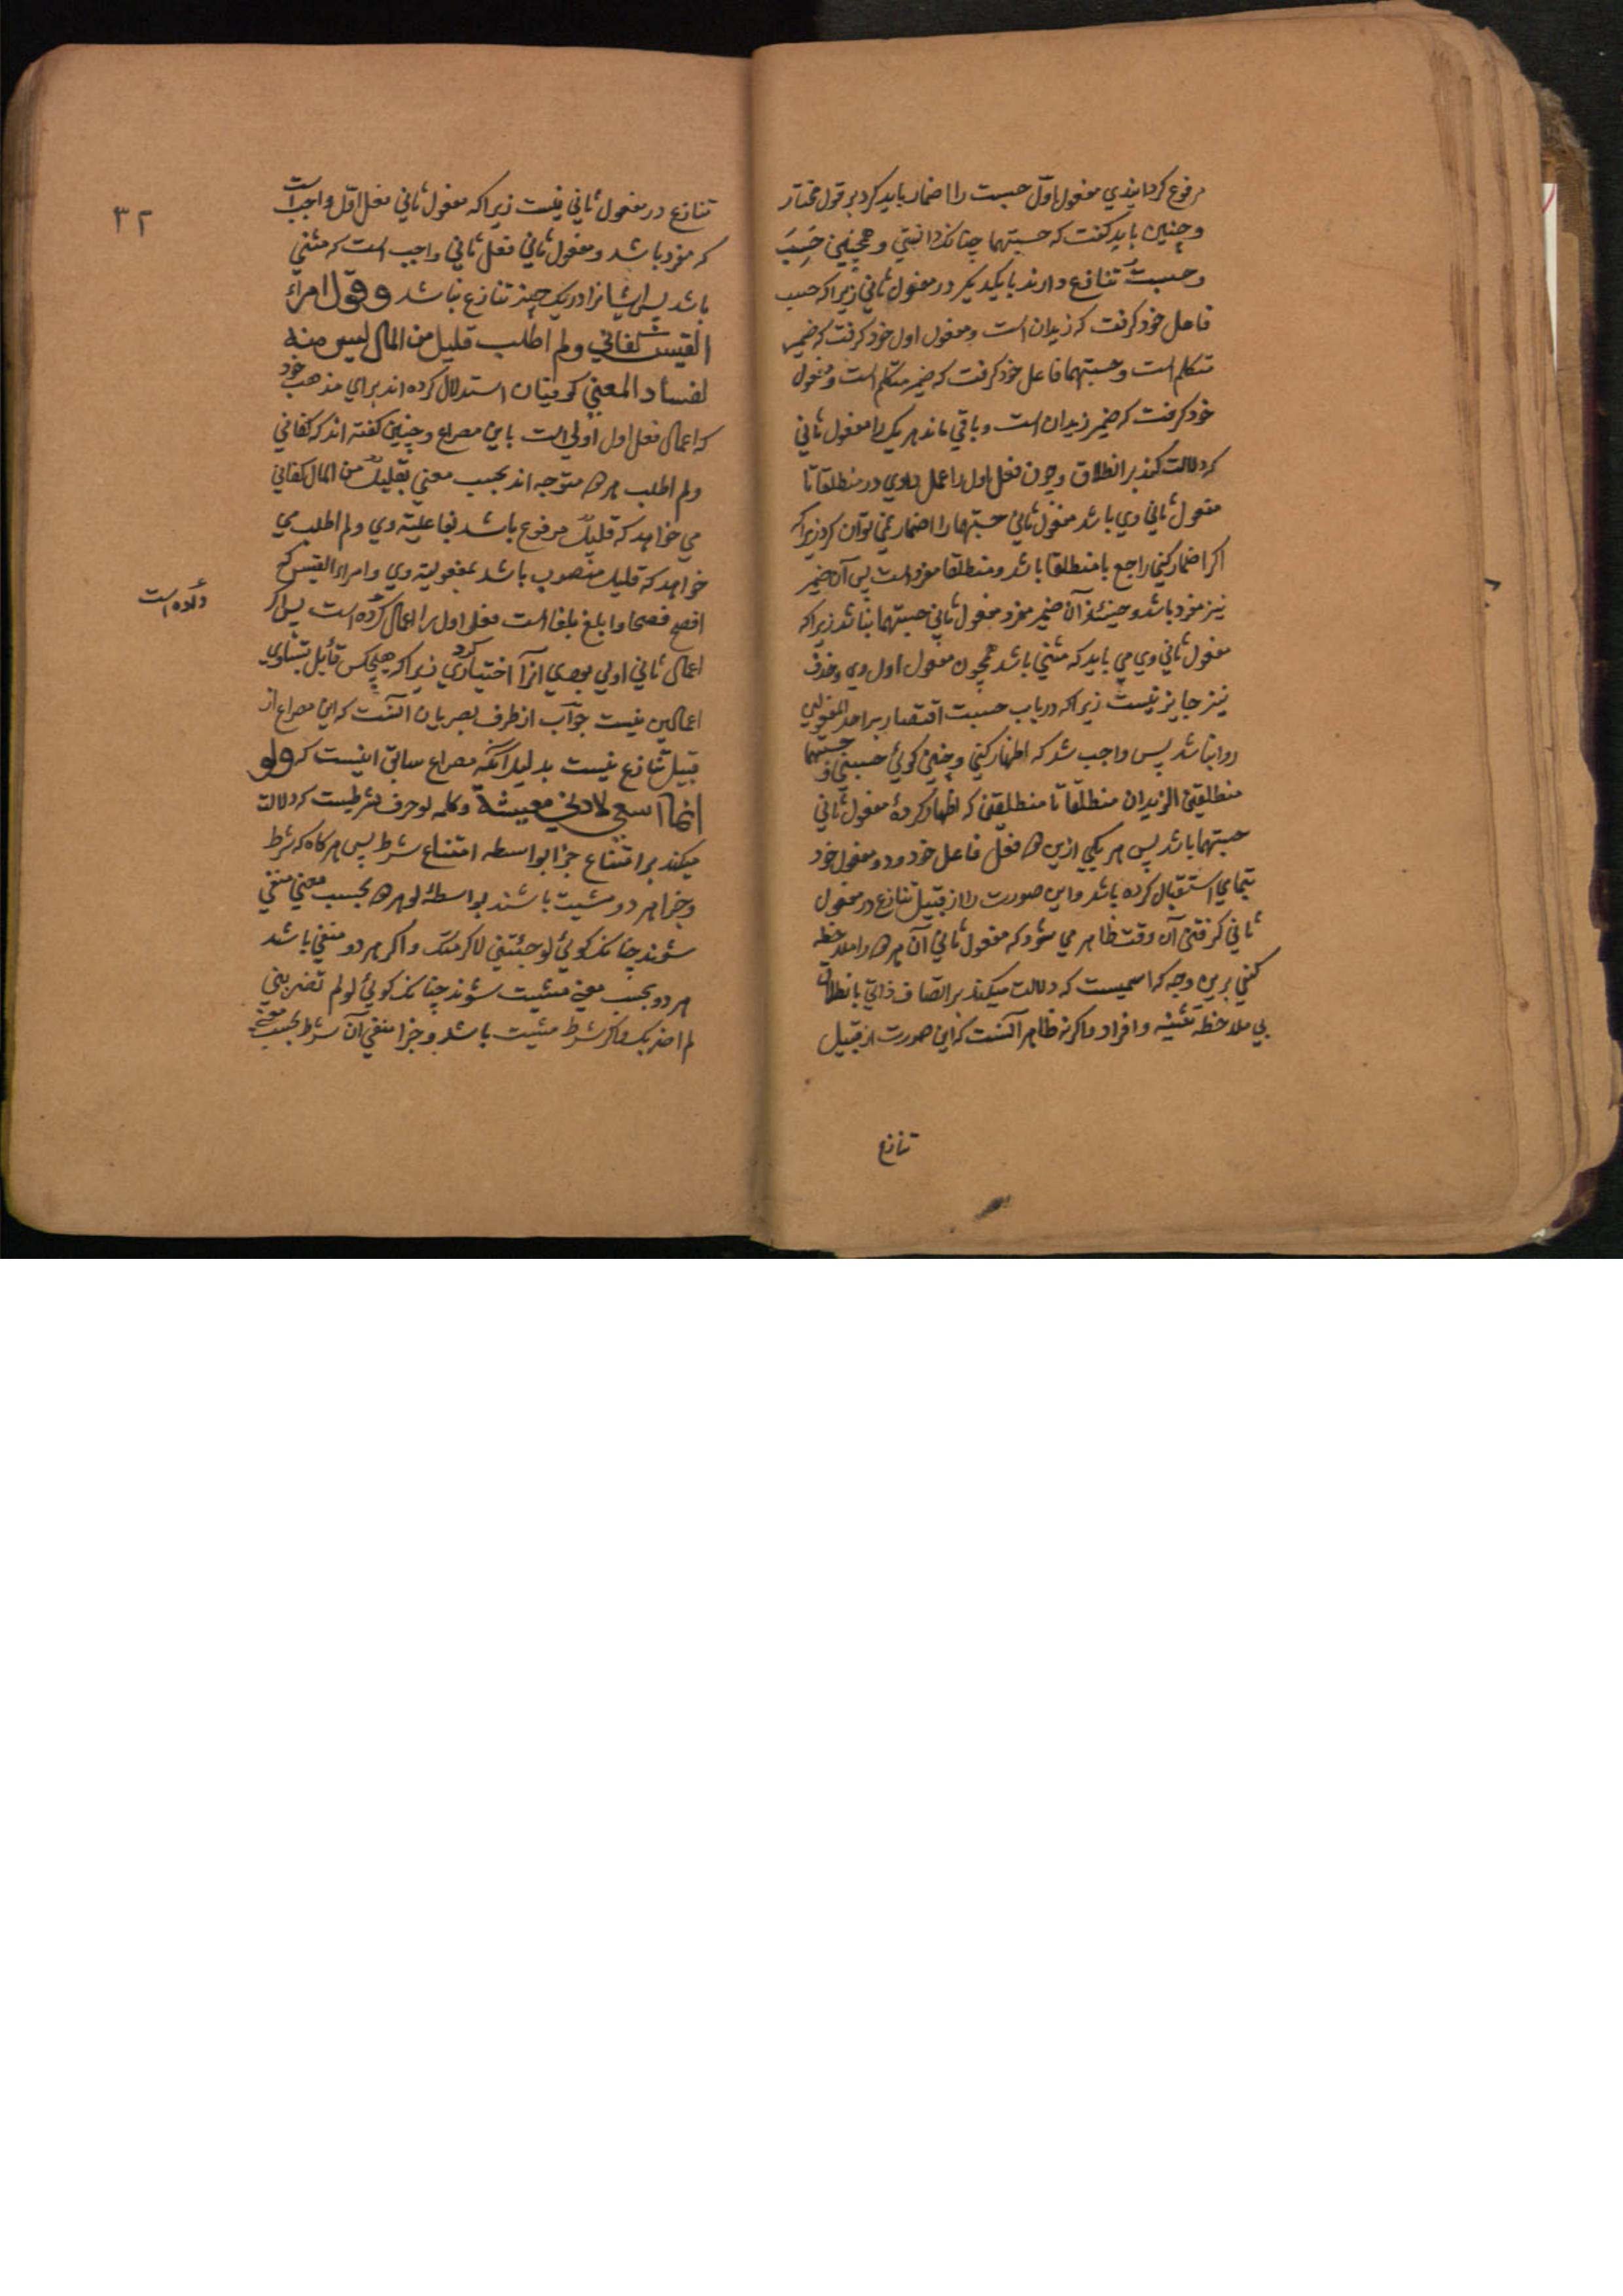 مرفوع کردانیدی مفعول اول حسبت را اضمار باید کرد بر قول مختار
و چنین باید کفت که حسبتهما چنانک دانستی و همچنین حَسِبَ
و حسبتُ تنازع دارند با یکدیکر در مفعول ثانی زیرا که حسب
فاعل خود کرفت که زیدان است و مفعول اول خود کرفت که ضمیر
متکلم است و حسبتهما فاعل خود کرفت که ضمیر متکلم است و مفعول
خود کرفت که ضمیر زیدان است و باقی ماند هر یک را مفعول ثانی
که دلالت کند بر انطلاق و چون فعل اول را عمل دادی در منطلقا تا
مفعول ثانی وی باشد مفعول ثانی حسبتهما را اضمار نمی توان کرد زیرا که
اکر اضمار کنی راجع با منطلقا باشد و منطلقا مفرد است پس آن ضمیر
نیز مفرد باشد و حینئذ آن ضمیر مفرد مفعول ثانی حسبتهما نباشد زیرا که
مفعول ثانی وی می باید که مثنی باشد همچون مفعول اول وی و حذف
نیز جایز نیست زیرا که در باب حسبت اقتصار بر احد المفعولین
روا نباشد پس واجب شد که اظهار کنی و چنین کوئی حسبنی و حسبتهما
منطلقین الزیدان منطلقا تا منطلقین که اظهار کردهٔ مفعول ثانی
حسبتهما باشد پس هر یکی ازین دو فعل فاعل خود و دو مفعول خود
بتمامی استقبال کرده باشد و این صورت را از قبیل تنازع در مفعول
ثانی کرفتن آن وقت ظاهر می شود که مفعول ثانی آن هر دو را ملاحظه
کنی برین وجه که اسمیست که دلالت میکند بر اتصاف ذاتی بانطلاق
بی ملاحظه تثنیه و افراد و اکر نه ظاهر آنست که این صورت از قبیل
تنازع
٣٢
تنازع در مفعول ثانی نیست زیرا که مفعول ثانی فعل اول واجب است
که مفرد باشد و مفعول ثانی فعل ثانی واجب است که مثنی
باشد پس ایشانرا در یک چیز تنازع نباشد وقول امراء
القیس کفانی ولم اطلب قلیل من المال لیس منه
لفساد المعنی کوفیان استدلال کرده اند برای مذهب خود
که اعمال فعل اول اولی است باین مصراع و چنین کفته اند که کفانی
ولم اطلب هر دو متوجه اند بحسب معنی بقلیل من المال کفانی
می خواهد که قلیل مرفوع باشد بفاعلیة وی ولم اطلب می
خواهد که قلیل منصوب باشد بمفعولیة وی و امراء القیس که
افصح فصحا و ابلغ بلغا است فعل اول را اعمال کرده است پس اکر
داده است
اعمال ثانی اولی بودی آنرا اختیار کردی زیرا که هیچکس قائل بتساوی
اعمالین نیست جواب از طرف بصریان آنست که این مصراع از
قبیل تنازع نیست بدلیل آنکه مصراع سابق اینست که ولو
انما اسعی لادنی معیشة و کلمه لو حرف شرطیست که دلالت
میکند بر امتناع جزا بواسطه امتناع شرط پس هر کاه که شرط
و جزا هر دو مثبت باشند بواسطهٔ لو هر دو بحسب معنی منفی
شوند چنانک کوئی لو جئتنی لاکرمتک و اکر هر دو منفی باشد
هر دو بحسب معنی مثبت شوند چنانک کوئی لو لم تضربنی
لم اضربک و اکر شرط مثبت باشد و جزا منفی آن شرط بحسب معنی